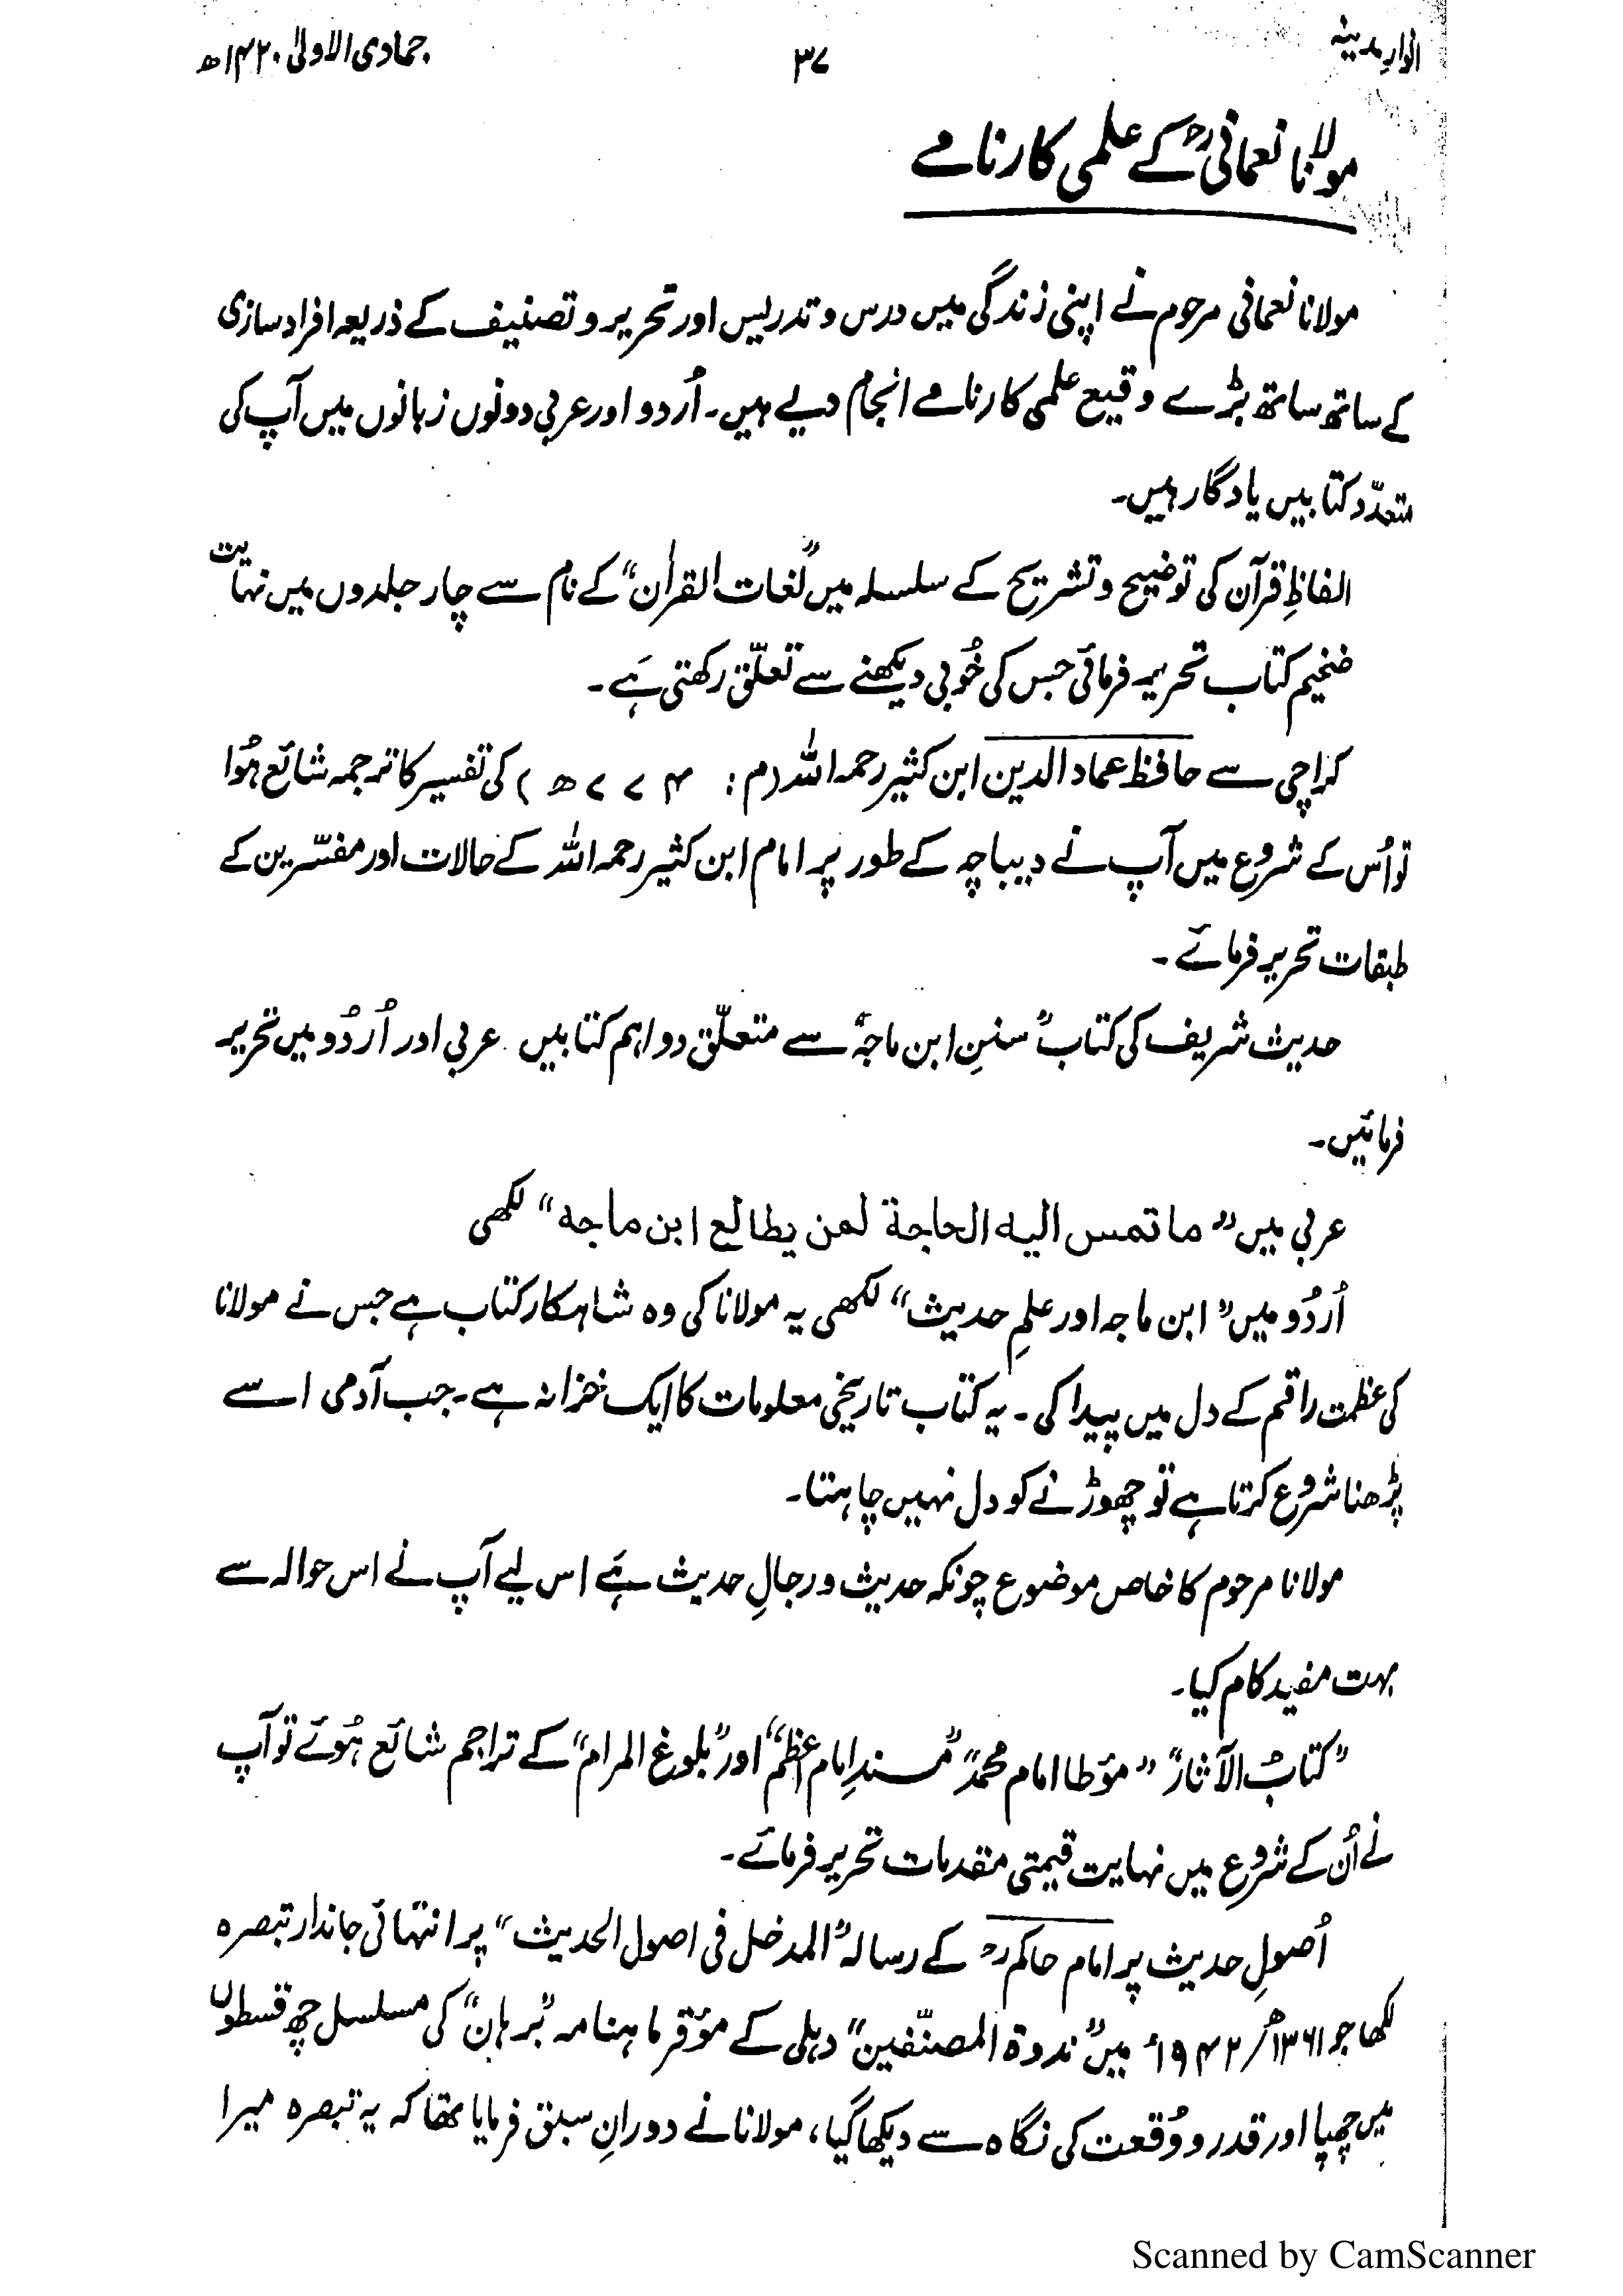 انوارِ مدینہ
۳۷
جمادی الاولیٰ ۱۴۲۰ھ
مولانا نعمانیؒ کے علمی کارنامے
مولانا نعمانی مرحوم نے اپنی زندگی میں درس و تدریس اور تحریر و تصنیف کے ذریعہ افراد سازی
کے ساتھ ساتھ بڑے وقیع علمی کارنامے انجام دیے ہیں۔ اُردو اور عربی دونوں زبانوں میں آپ کی
متعدّد کتابیں یادگار ہیں۔
الفاظِ قرآن کی توضیح و تشریح کے سلسلہ میں ”لُغات القراٰن“ کے نام سے چار جلدوں میں نہایت
ضخیم کتاب تحریر فرمائی جس کی خُوبی دیکھنے سے تعلّق رکھتی ہَے۔
کراچی سے حافظ عماد الدین ابن کثیر رحمہ اللہ (م: ۷۷۴ھ) کی تفسیر کا ترجمہ شائع ہُوا
تو اُس کے شروع میں آپ نے دیباچہ کے طور پر امام ابن کثیر رحمہ اللہ کے حالات اور مفسّرین کے
طبقات تحریر فرمائے۔
حدیث شریف کی کتاب ”سننِ ابن ماجہ“ سے متعلّق دو اہم کتابیں عربی اور اُردُو میں تحریر
فرمائیں۔
عربی میں ”ما تمس الیہ الحاجة لمن یطالع ابن ماجه“ لکھی
اُردُو میں ”ابن ماجہ اور علمِ حدیث“ لکھی یہ مولانا کی وہ شاہکار کتاب ہے جس نے مولانا
کی عظمت راقم کے دل میں پیدا کی۔ یہ کتاب تاریخی معلومات کا ایک خزانہ ہے۔ جب آدمی اسے
پڑھنا شروع کرتا ہے تو چھوڑنے کو دل نہیں چاہتا۔
مولانا مرحوم کا خاص موضوع چونکہ حدیث و رجالِ حدیث ہَے اس لیے آپ نے اس حوالہ سے
بہت مفید کام کیا۔
”کتابُ الآثار“ ”مؤطا امام محمدؒ“ ”مُسندِ امام اعظمؒ“ اور ”بلوغ المرام“ کے تراجم شائع ہُوئے تو آپ
نے اُن کے شروع میں نہایت قیمتی مقدمات تحریر فرمائے۔
اُصولِ حدیث پر امام حاکمؒ کے رسالہ ”المدخل فی اصول الحدیث“ پر انتہائی جاندار تبصرہ
لکھا جو ۱۳۶۱ھ/۱۹۴۲ء میں ”ندوۃ المصنّفین“ دہلی کے مؤقر ماہنامہ ”بُرہان“ کی مسلسل چھ قسطوں
میں چھپا اور قدر و وُقعت کی نگاہ سے دیکھا گیا، مولانا نے دورانِ سبق فرمایا تھا کہ یہ تبصرہ میرا
Scanned by CamScanner